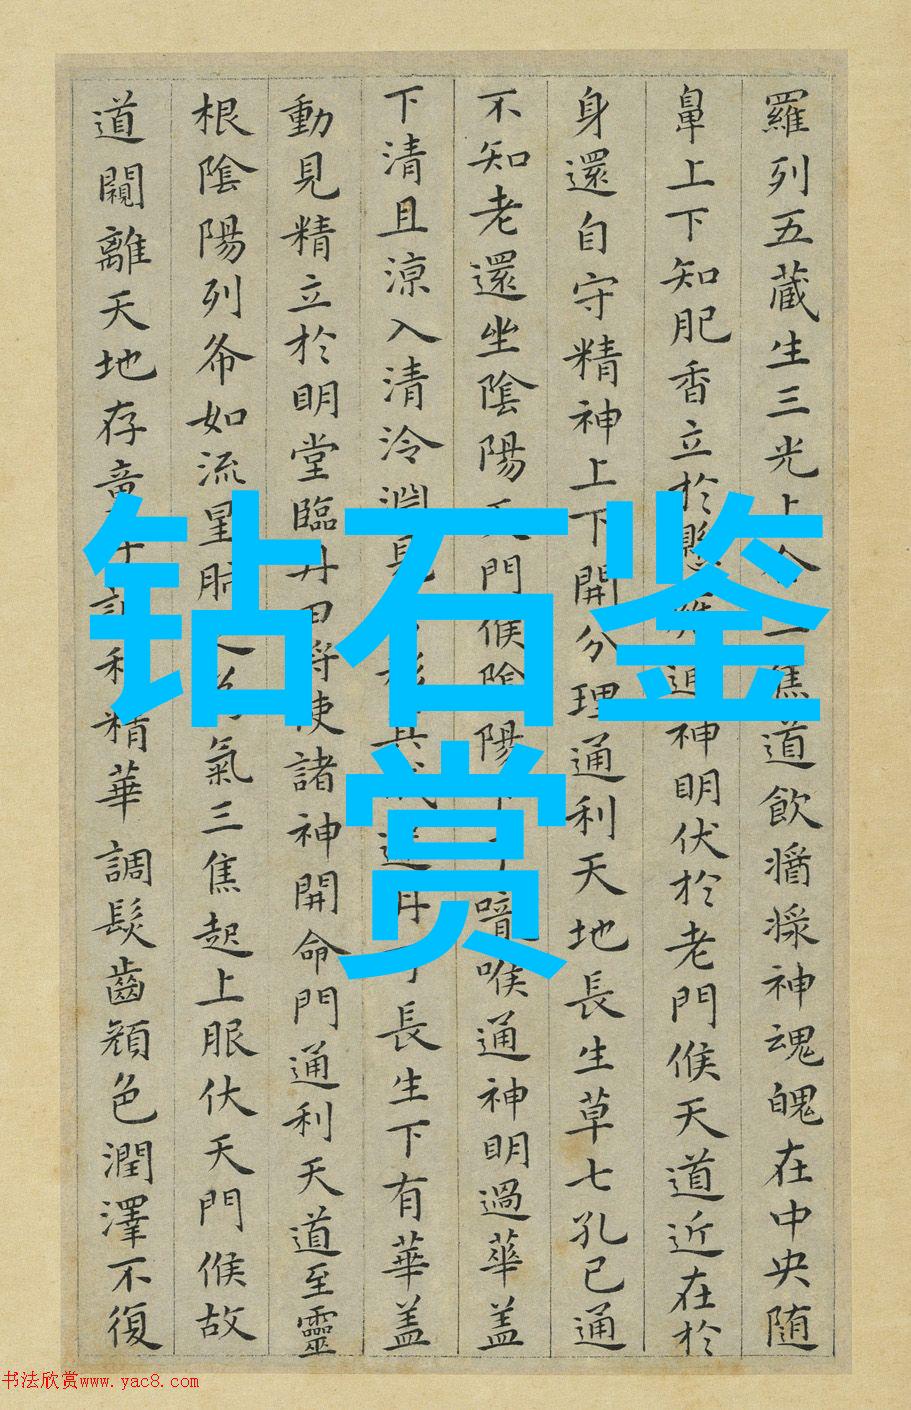 羅列五藏生三光上合三焦道飲醬漿神魂魄在中央随
鼻上下知肥香立於懸雍通神明伏於老門候天道近在於
身還自守精神上下開分理通利天地長生草七孔已通
不知老還坐陰陽天門候陰陽下喉嚨通神明過華盖
下清且涼入清泠淵見吾形其成還丹可長生下有華盖
動見精立於明堂臨丹田将使諸神開命門通利天道至靈
根陰陽列布如流星肝氣三焦起上服伏天門候故
道闚離天地存童子調利精華調髮齒顏色潤澤不復
钻石鉴
赏
书法欣赏www.yac8.com